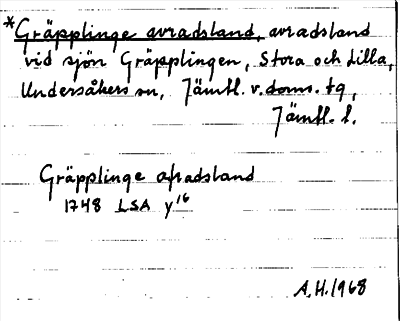 *Gräpplinge avradsland, avradsland
vid sjön Gräpplingen, Stora och Lilla,
Undersåkers sn, Jämtl. v. doms. tg,
Jämtl. l.
Gräpplinge afradsland
1748 LSA y16
A.H. 1968